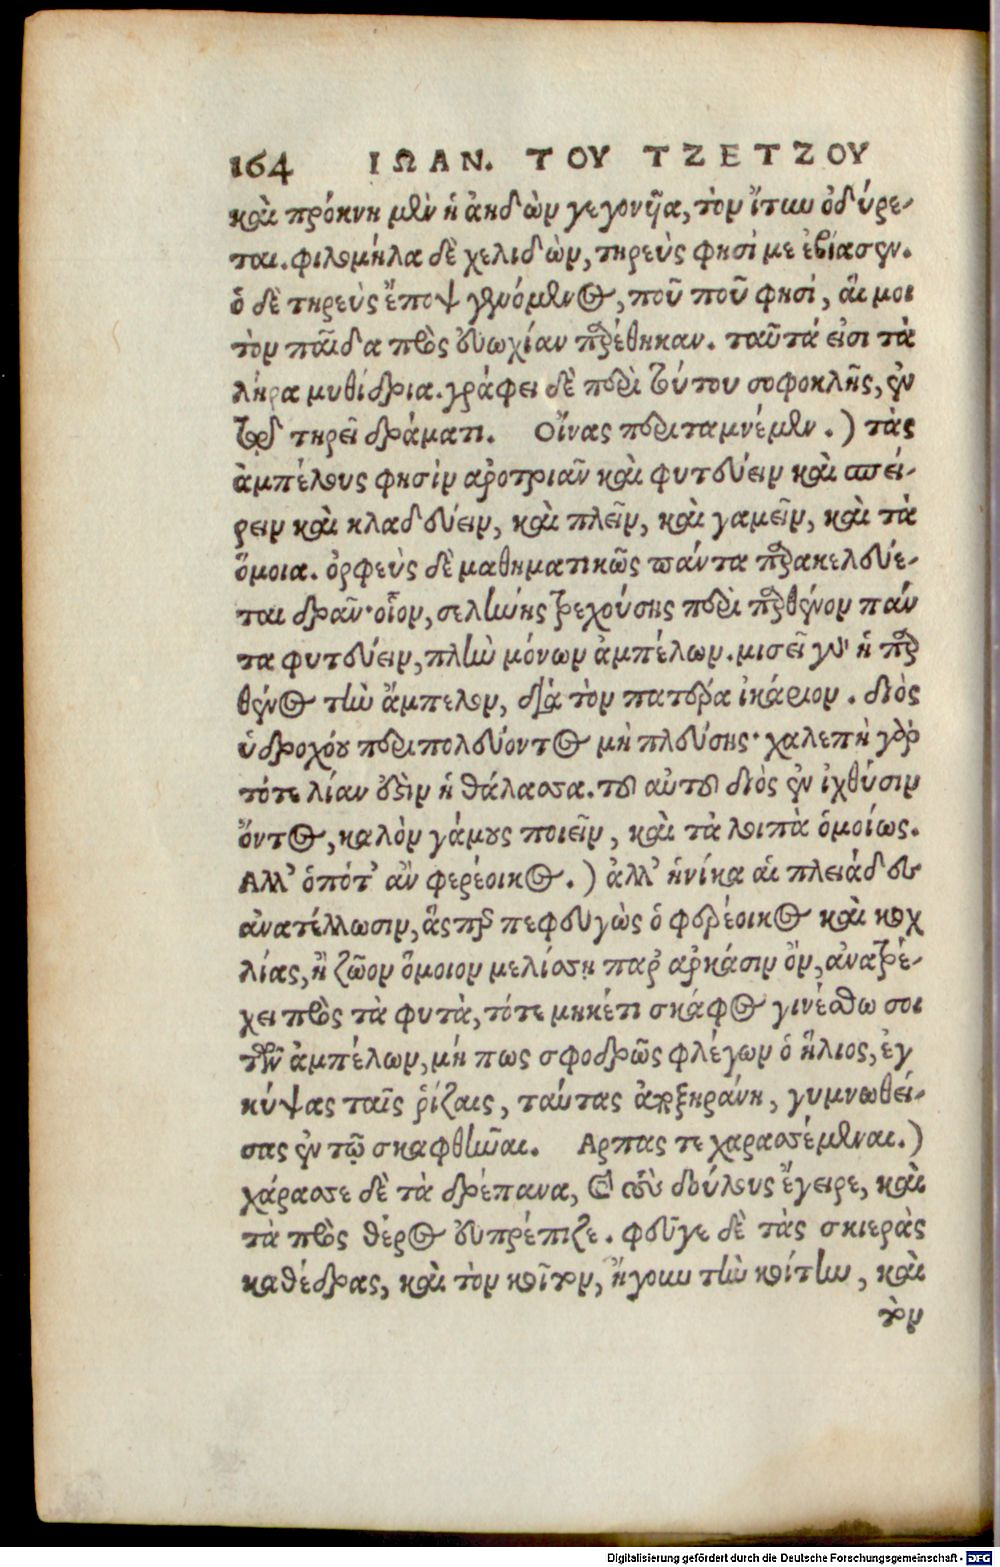 164 ΙΩΑΝ. ΤΟΥ ΤΖΕΤΖΟΥ
καὶ πρόκνη μὲν ἡ ἀηδὼν γεγονῦα, τὸν ἴτυν ὀδύρε-
ται. φιλομήλα δὲ χελιδὼν, τηρεύς φησί με ἐβίασεν.
ὁ δὲ τηρεὺς ἔποψ γενόμενος, ποῦ ποῦ φησί, αἵ μοι
τὸν παῖδα πρὸς εὐωχίαν παρέθηκαν. ταῦτά εἰσι τὰ
λήρα μυθίδρια. γράφει δὲ περὶ τούτου σοφοκλῆς, ἐν
τῷ τηρεῖ δράματι. Οἴνας περιταμνέμεν.) τὰς
ἀμπέλους φησὶν ἀροτριᾶν καὶ φυτεύειν καὶ σπεί-
ρειν καὶ κλαδεύειν, καὶ πλεῖν, καὶ γαμεῖν, καὶ τὰ
ὅμοια. ὀρφεὺς δὲ μαθηματικῶς πάντα παρακελεύε-
ται δρᾶν· οἷον, σελήνης τρεχούσης περὶ παρθένον πάν
τα φυτεύειν, πλὴν μόνων ἀμπέλων. μισεῖ γὰρ ἡ παρ
θένος τὴν ἄμπελον, διὰ τὸν πατέρα ἰκάριον. διὸς
ὑδροχόου περιπολεύοντος μὴ πλεύσῃς· χαλεπὴ γὰρ
τότε λίαν ἐστὶν ἡ θάλασσα. τοῦ αὐτοῦ διὸς ἐν ἰχθύσιν
ὄντος, καλὸν γάμους ποιεῖν, καὶ τὰ λοιπὰ ὁμοίως.
Ἀλλ' ὁπότ' ἂν φερέοικος.) ἀλλ' ἡνίκα αἱ πλειάδες
ἀνατέλλωσιν, ἅσπερ πεφευγὼς ὁ φερέοικος καὶ κοχ
λίας, ἢ ζῶον ὅμοιον μελίσσῃ παρ' ἀρκάσιν ὂν, ἀνατρέ-
χει πρὸς τὰ φυτὰ, τότε μηκέτι σκάφος γινέσθω σοι
τῶν ἀμπέλων, μή πως σφοδρῶς φλέγων ὁ ἥλιος, ἐγ
κύψας ταῖς ῥίζαις, ταύτας ἀποξηράνῃ, γυμνωθεί-
σας ἐν τῷ σκαφθῆναι. Αρπας τε χαρασσέμεναι.)
χάρασσε δὲ τὰ δρέπανα, καὶ τοὺς δούλους ἔγειρε, καὶ
τὰ πρὸς θέρος εὐπρέπιζε. φεῦγε δὲ τὰς σκιερὰς
καθέδρας, καὶ τὸν κοῖτον, ἤγουν τὴν κοίτην, καὶ
τὸν
Digitalisierung gefördert durch die Deutsche Forschungsgemeinschaft - DFG